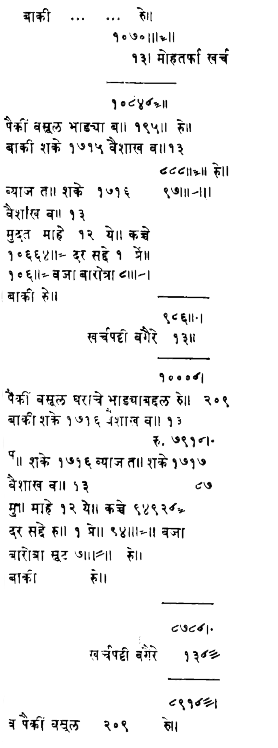 बाकी ... ... रु॥
१०७०॥।≈॥
१३। मोहतर्फा खर्च
१०८४८≈॥
पैकीं वसूल भाड्या ब॥ १९५॥ रु॥
बाकी शके १७१५ वैशाख व॥१३
८८८॥≈॥ रु॥
व्याज त॥ शके १७१६ ९७॥-।॥
वैशाख व॥ १३
मुदत माहे १२ ये॥ कच्चे
१०६६४॥= दर सद्दे १ प्रें॥
१०६॥= वजा बारोत्रा ८॥-।
बाकी रु॥
९८६॥-।
खर्चपट्टी वगैरे १३॥
१०००८।
पैकीं वसूल घराचे भाड्याबद्दल रु॥ २०९
बाकी शके १७१६ वैशाख व॥ १३
रु. ७९१८-।
प॥ शके १७१६ व्याज त॥ शके १७१७
वैशाख व॥ १३ ८७
मु॥ माहे १२ ये॥ कच्चे ९४९२८=
दर सद्दे रु॥ १ प्रे॥ ९४॥।=॥ वजा
बारोत्रा सूट ७॥।=॥ रु॥
बाकी रु॥
८७८८।-
खर्चपट्टी वगैरे १३८≡
८९१८≡।
व पैकीं वसूल २०९ रु॥